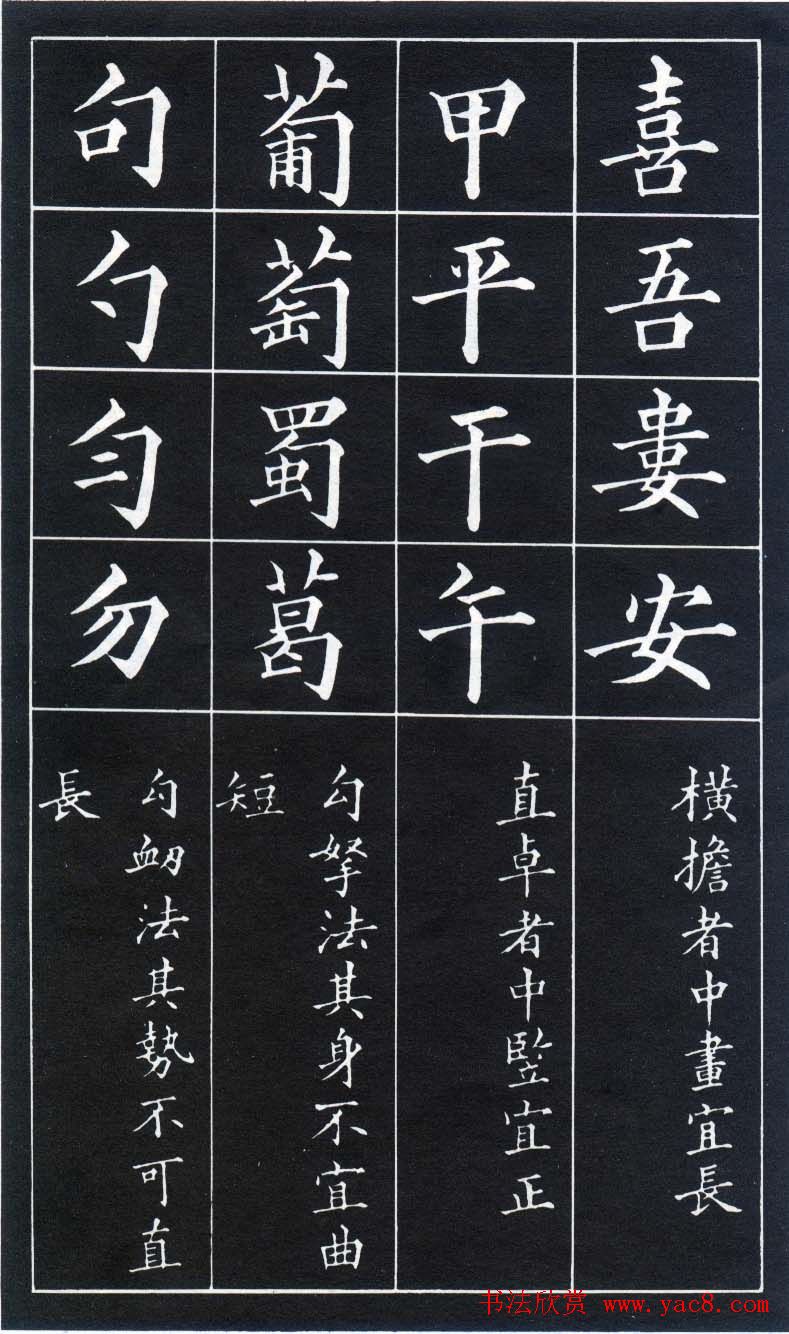 喜吾婁安
橫擔者中畫宜長
甲平干午
直卓者中竪宜正
葡萄蜀葛
勾拏法其身不宜曲
短
句勺勻勿
勾衂法其勢不可直
長
书法欣赏 www.yac8.com